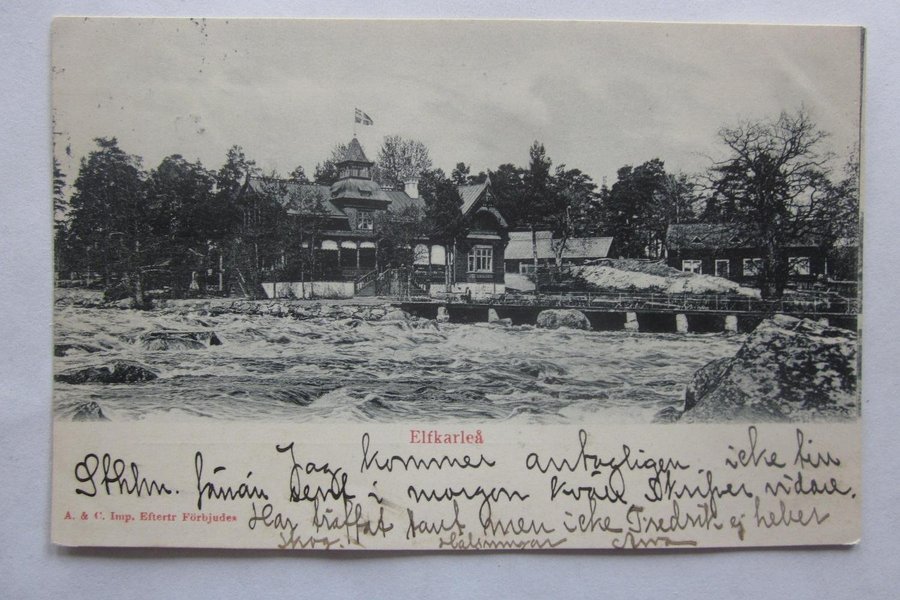 Elfkarleå
Jag kommer antagligen icke
Sthlm. sent i morgon kväll Skrifver vidare.
A. & C. Imp. Eftertr Förbjudes
Har träffat tant men icke Fredrik ej heller
Hälsningar